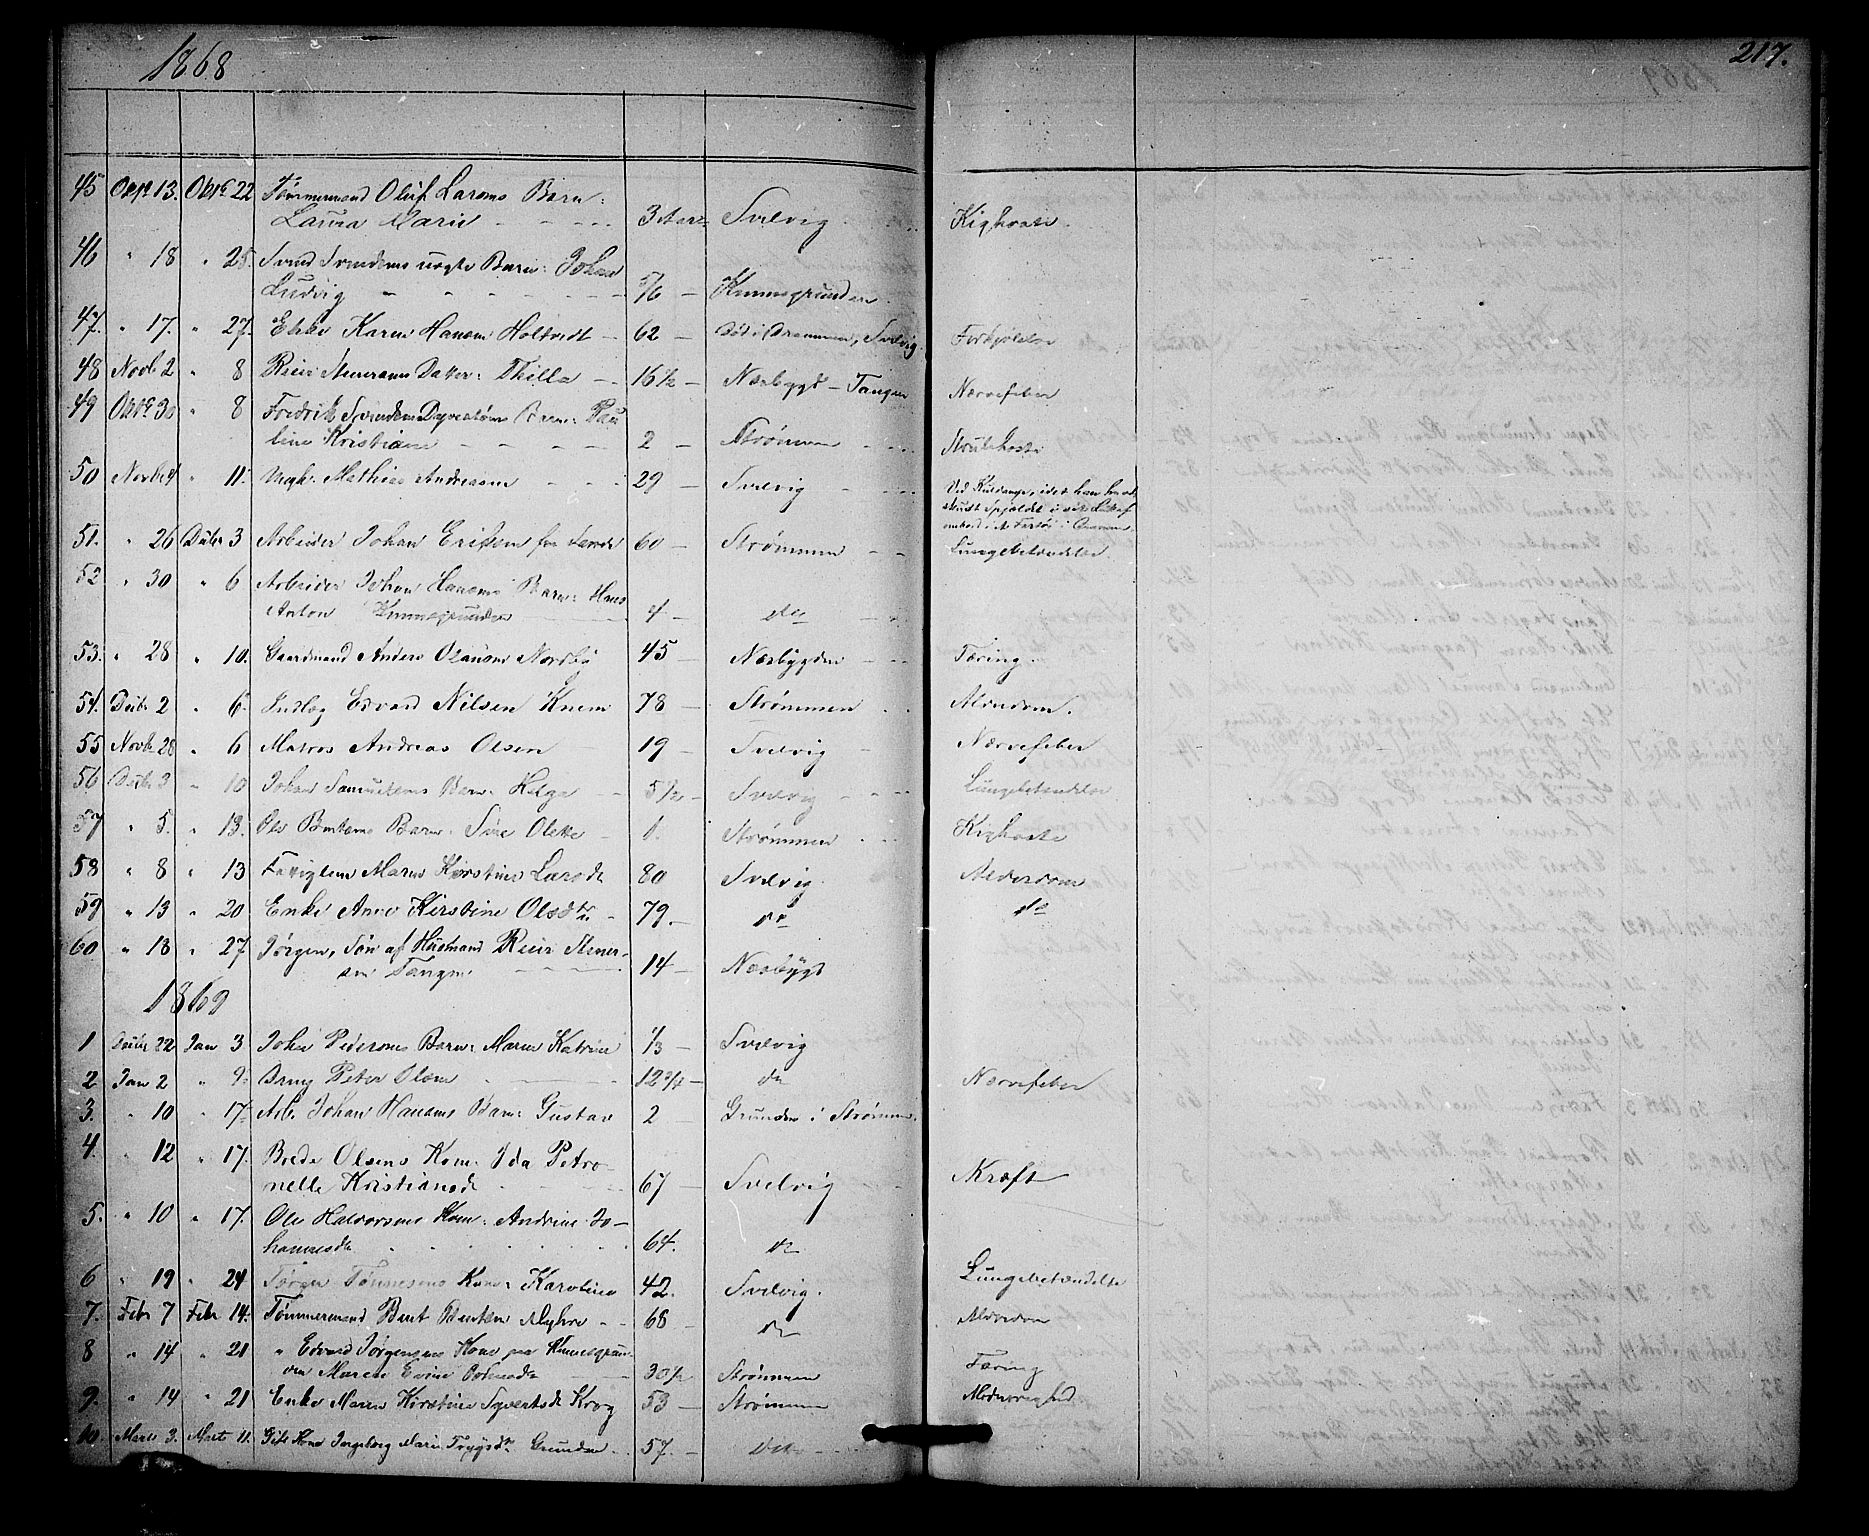 1868
217.
45 Octbr 13. Octbr 22 Tømmermand Oluf Larsens Barn:
Laura Marie 3 Aar Svelvig Kighoste
46 " 18 " 25. Svend Svendsens uægte Barn: Johan
Ludvig 5/6 — Knemsgrunden
47. " 17. " 27. Enke Karen Hansen Holtvedt — 62 — død i Drammen, Svelvig. Forkjølelse
48 Novb 2 " 8 Reier Steneraas Datter: Thilla — 16 1/2 — Næsbygd — Tangen Nervefeber
49 Octbr 30 " 8 Fredrik Svendsen Dyrestøms Barn: Pau
line Kristiane 2 — Strømmen Strubehoste
50 Novbr 4 " 11. Ungk. Mathias Andreasen 29 — Svelvig Ved Kuldamp, idet han havde
skudt Spjældet i sit Lukaf
ombord i et Fartøi i Drammen
51. " 26 Decbr 3 Arbeider Johan Eriksen fra Lande 60 — Strømmen Lungebetændelse
52 " 30 " 6 Arbeider Johan Hansens Barn: Hans
Anton Knemsgrunden 4 — do
53. " 28 " 10. Gaardmand Anders Olausen Nordby 45 — Næsbygden Tæring.
54. Decbr 2 " 6. Indlæg Edvard Nilsen Knem 78 — Strømmen Alderdom.
55 Novbr 28 " 6 Matros Andreas Olsen 19 — Svelvig Nervefeber
56 Decbr 3 " 10 Johan Samuelsens Barn: Helga 5 1/2 — Svelvig Lungebetændelse
57 " 5. " 13. Ole Bentsens Barn: Sine Olette 1. Strømmen Kighoste
58 " 8 " 13 Fattiglem Maren Kirstine Larsdt 80 Svelvig Alderdom
59 " 13 " 20 Enke Anne Kirstine Olsdtr 79. — do do
60 " 18 " 27 Jørgen, Søn af Husmand Reier Stener-
sen Tangen 14 — Næsbygd
1869
1 Decbr 22 Jan 3 Johan Pedersens Barn: Maren Katrine 1/3 — Svelvig
2 Jan 2 " 9. Dreng Peter Olsen 12 3/4 — do Nervefeber
3. " 10 " 17. Arb. Johan Hansens Barn: Gustav 2 Grunden i Strømmen.
4. " 12 " 17. Brede Olsens Kone: Ida Petro-
nelle Kristiansdt 67 — Svelvig Kræft
5. " 10 " 17. Ole Halvorsens Kone: Andrine Jo-
hannesdt 64. do
6 " 19 " 24 Jørgen Tønnesens Kone: Karoline 42. Svelvig. Lungebetændelse
7. Febr 7 Febr 14. Tømmermand Bent Bentsen Myhre 68 — do Alderdom
8 " 14 " 21 " Edvard Jørgensens Kone paa Knemsgrun-
den Marete Evine 30 1/2 Strømmen Tæring
9. " 14 " 21 Enke Maren Kirstine Syvertsdt Krog 53 — Strømmen
10. Marts 3. Marts 11. Gift Kone Ingeborg Marie Trygsdtr Grunden 57. — do